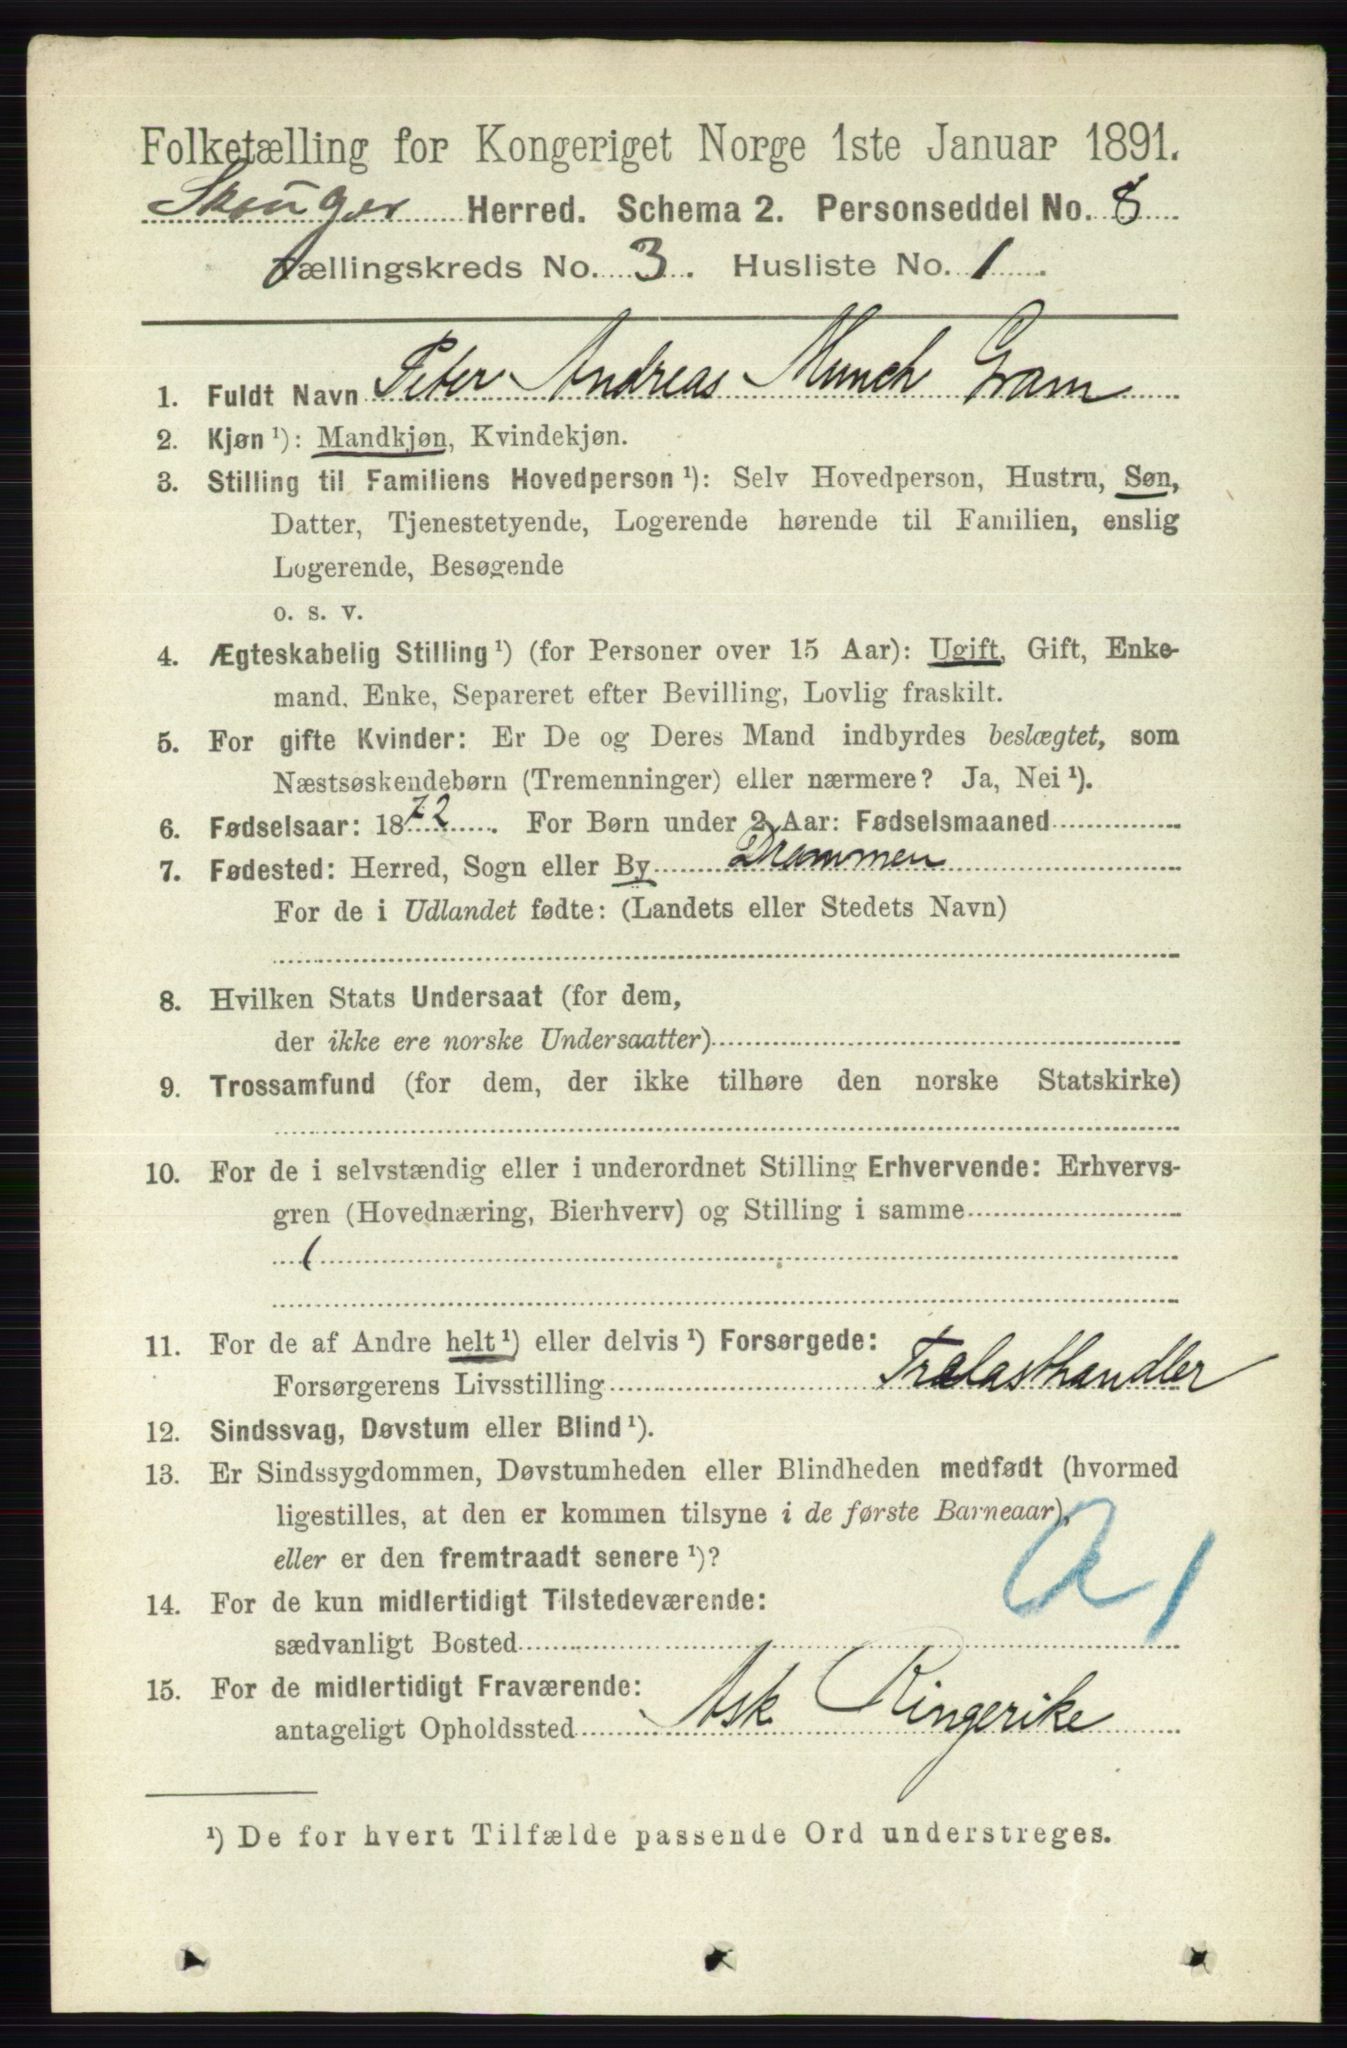 Folketælling for Kongeriget Norge 1ste Januar 1891.
Skouger Herred. Schema 2. Personseddel No. 8
Tællingskreds No. 3. Husliste No. 1.
1. Fuldt Navn Peter Andreas Munch Gram
2. Kjøn ¹): Mandkjøn, Kvindekjøn.
3. Stilling til Familiens Hovedperson ¹): Selv Hovedperson, Hustru, Søn,
Datter, Tjenestetyende, Logerende hørende til Familien, enslig
Logerende, Besøgende
o. s. v.
4. Ægteskabelig Stilling ¹) (for Personer over 15 Aar): Ugift, Gift, Enke-
mand, Enke, Separeret efter Bevilling, Lovlig fraskilt.
5. For gifte Kvinder: Er De og Deres Mand indbyrdes beslægtet, som
Næstsøskendebørn (Tremenninger) eller nærmere? Ja, Nei ¹).
6. Fødselsaar: 1872. For Børn under 2 Aar: Fødselsmaaned
7. Fødested: Herred, Sogn eller By Drammen
For de i Udlandet fødte: (Landets eller Stedets Navn)
8. Hvilken Stats Undersaat (for dem,
der ikke ere norske Undersaatter)
9. Trossamfund (for dem, der ikke tilhøre den norske Statskirke)
10. For de i selvstændig eller i underordnet Stilling Erhvervende: Erhvervs-
gren (Hovednæring, Bierhverv) og Stilling i samme
11. For de af Andre helt ¹) eller delvis ¹) Forsørgede:
Forsørgerens Livsstilling Trælasthandler
12. Sindssvag, Døvstum eller Blind ¹).
13. Er Sindssygdommen, Døvstumheden eller Blindheden medfødt (hvormed
ligestilles, at den er kommen tilsyne i de første Barneaar),
eller er den fremtraadt senere ¹)?
a 1
14. For de kun midlertidigt Tilstedeværende:
sædvanligt Bosted
15. For de midlertidigt Fraværende:
antageligt Opholdssted Ask Ringerike
¹) De for hvert Tilfælde passende Ord understreges.